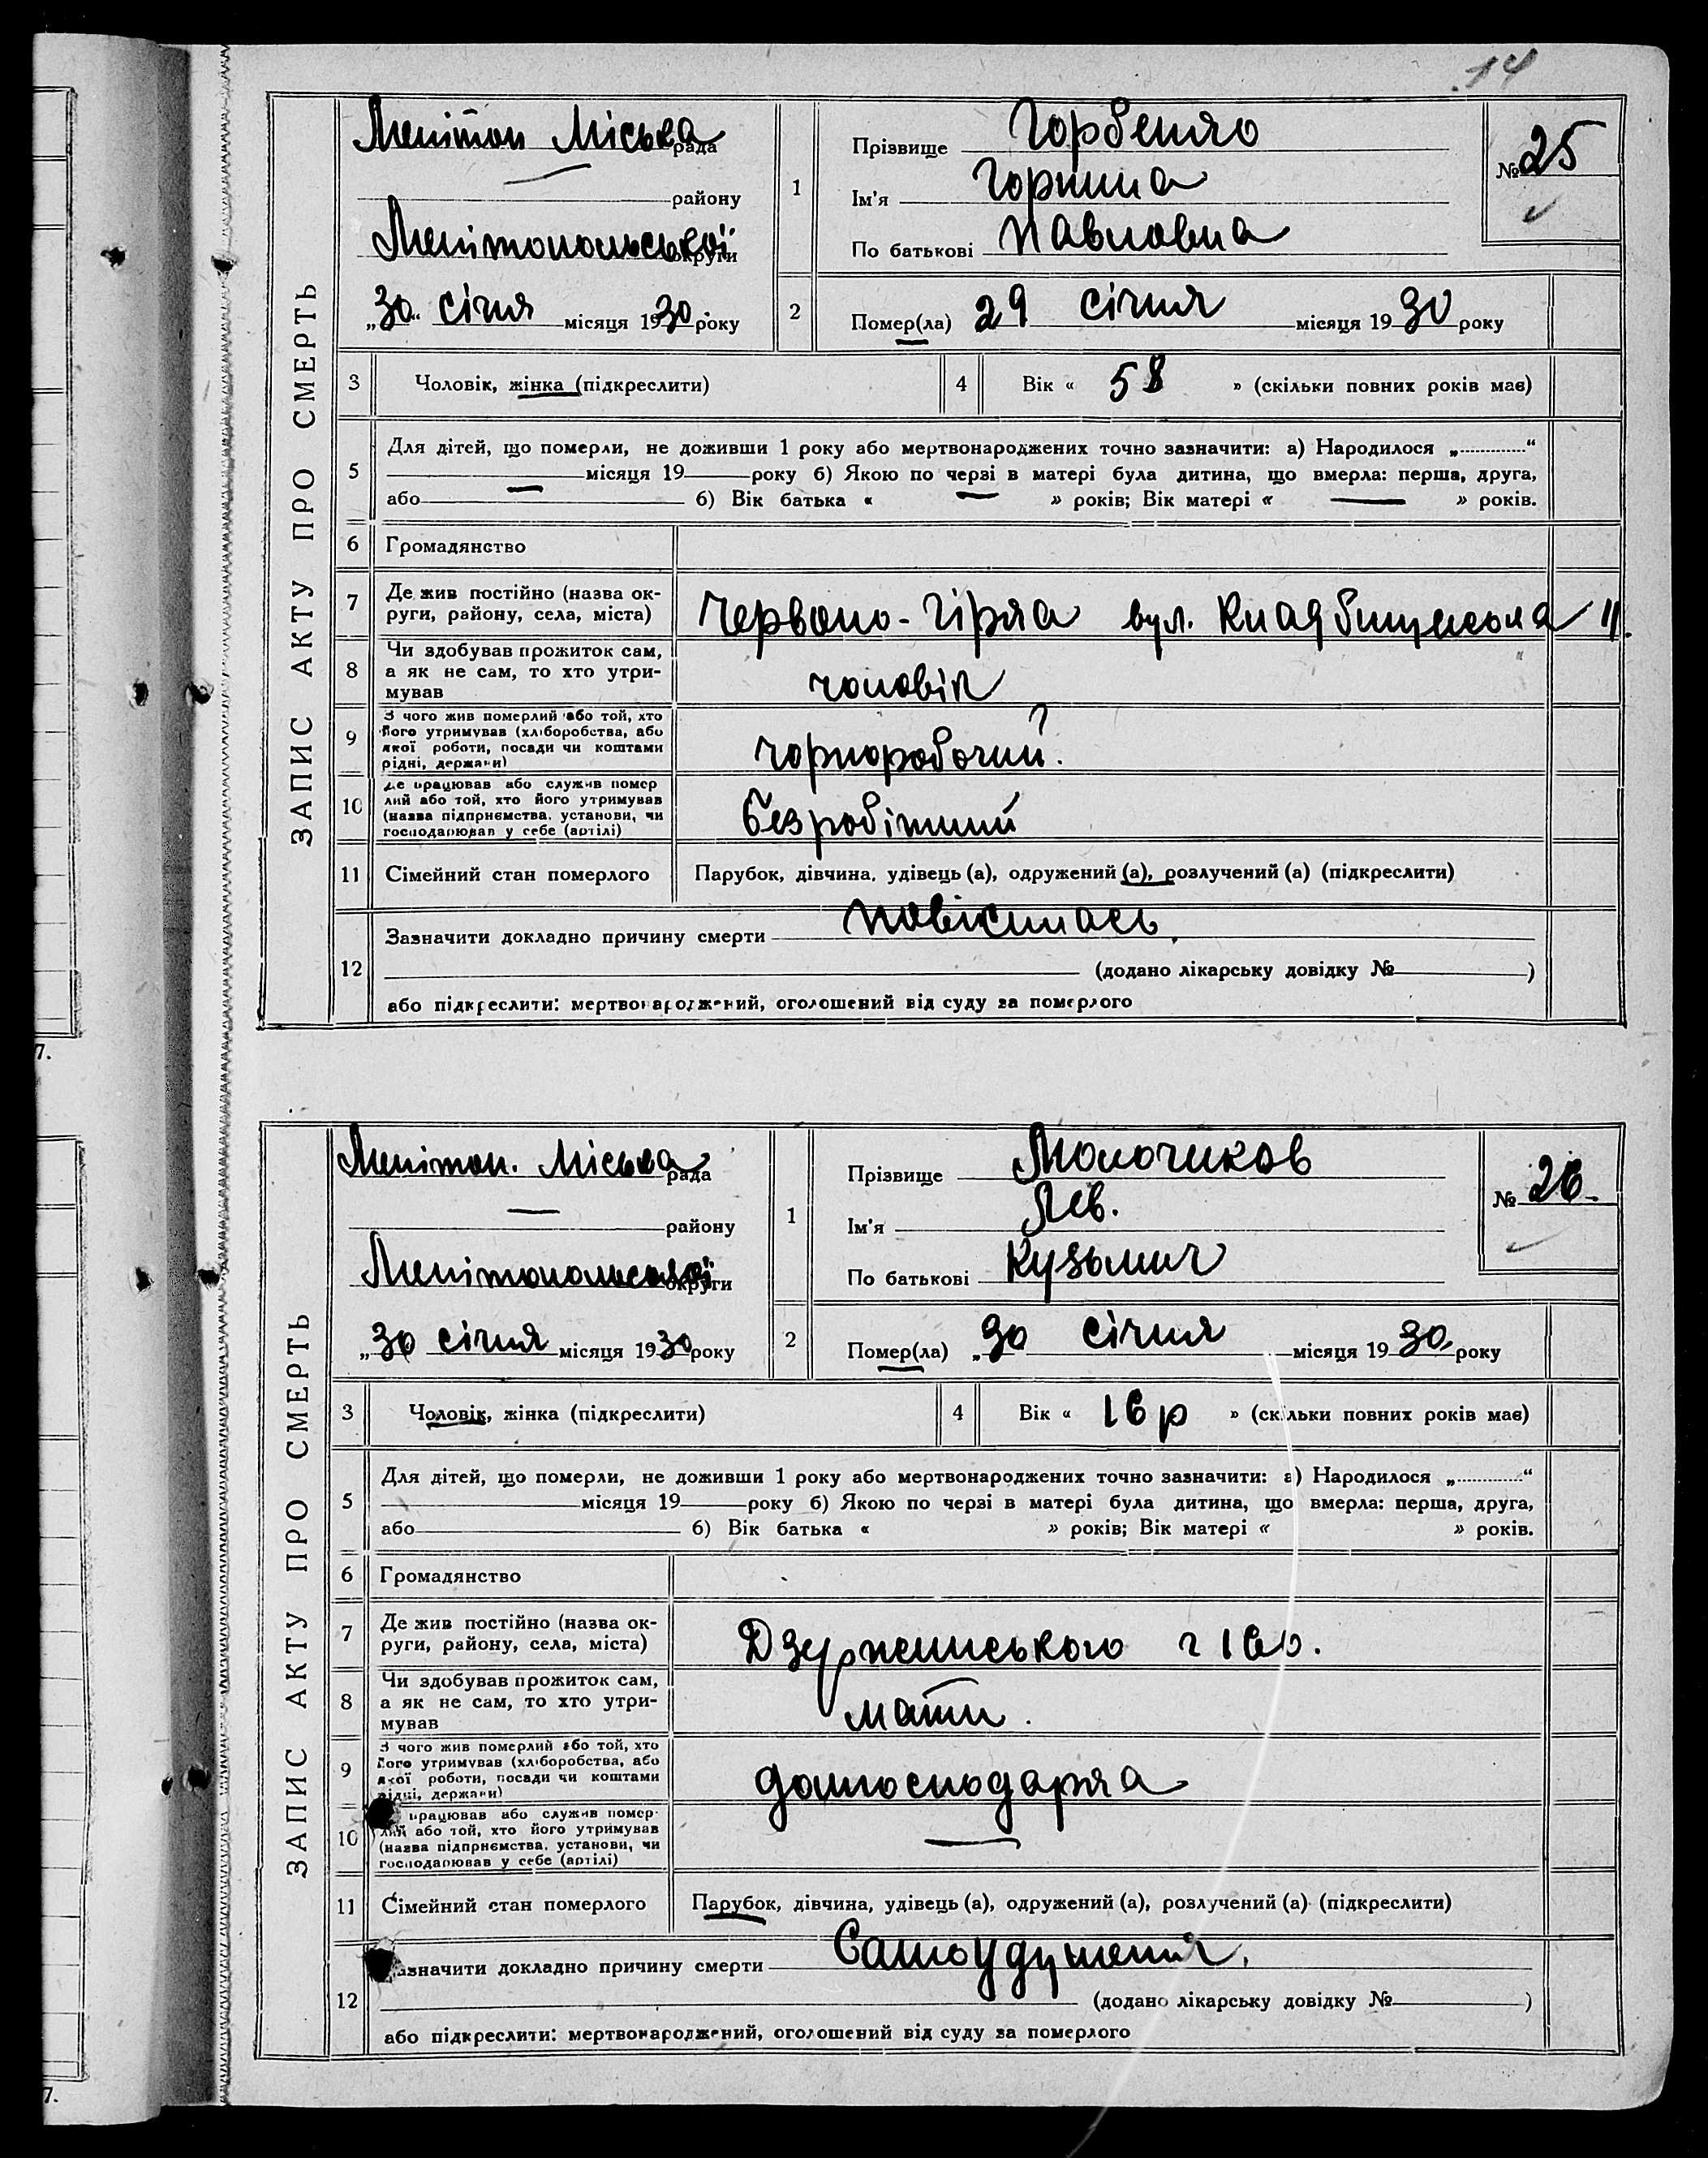 14
ЗАПИС АКТУ ПРО СМЕРТЬ
Меліtoп Міська рада
району
Мелітопольської округи
„30" січня місяця 1930 року
1
Прізвище Горбенко
Ім'я Горпина
По батькові Павловна
№ 25
2
Помер(ла) 29 січня місяця 1930 року
3
Чоловік, жінка (підкреслити)
4
Вік « 58 » (скільки повних років має)
5
Для дітей, що померли, не доживши 1 року або мертвонароджених точно зазначити: а) Народилося „ “
місяця 19 року б) Якою по черзі в матері була дитина, що вмерла: перша, друга,
або б) Вік батька « » років; Вік матері « » років.
6
Громадянство
7
Де жив постійно (назва ок-
руги, району, села, міста)
Червоно-гірка вул. Кладбищенська 11.
8
Чи здобував прожиток сам,
а як не сам, то хто утри-
мував
чоловік
9
З чого жив померлий або той, хто
його утримував (хліборобства, або
якої роботи, посади чи коштами
рідні, держави)
чорноробочий.
10
Де працював або служив помер
лий або той, хто його утримував
(назва підприємства, установи, чи
господарював у себе (артілі)
безробітний
11
Сімейний стан померлого
Парубок, дівчина, удівець (а), одружений (а), розлучений (а) (підкреслити)
12
Зазначити докладно причину смерти повісилась.
(додано лікарську довідку № )
або підкреслити: мертвонароджений, оголошений від суду за померлого
7.
ЗАПИС АКТУ ПРО СМЕРТЬ
Меліtoп. Міська рада
району
Мелітопольської округи
„30 січня місяця 1930 року
1
Прізвище Молочиков
Ім'я Лев.
По батькові Кузьмич
№ 26.
2
Помер(ла) „30 січня місяця 1930, року
3
Чоловік, жінка (підкреслити)
4
Вік « 16 р » (скільки повних років має)
5
Для дітей, що померли, не доживши 1 року або мертвонароджених точно зазначити: а) Народилося „ “
місяця 19 року б) Якою по черзі в матері була дитина, що вмерла: перша, друга,
або б) Вік батька « » років; Вік матері « » років.
6
Громадянство
7
Де жив постійно (назва ок-
руги, району, села, міста)
Дзержинського
8
Чи здобував прожиток сам,
а як не сам, то хто утри-
мував
мати.
9
З чого жив померлий або той, хто
його утримував (хліборобства, або
якої роботи, посади чи коштами
рідні, держави)
домгосподарка
10
працював або служив помер-
лий або той, хто його утримував
(назва підприємства, установи, чи
господарював у себе (артілі)
11
Сімейний стан померлого
Парубок, дівчина, удівець (а), одружений (а), розлучений (а) (підкреслити)
12
Зазначити докладно причину смерти Самоудушення.
(додано лікарську довідку № )
або підкреслити: мертвонароджений, оголошений від суду за померлого
7.